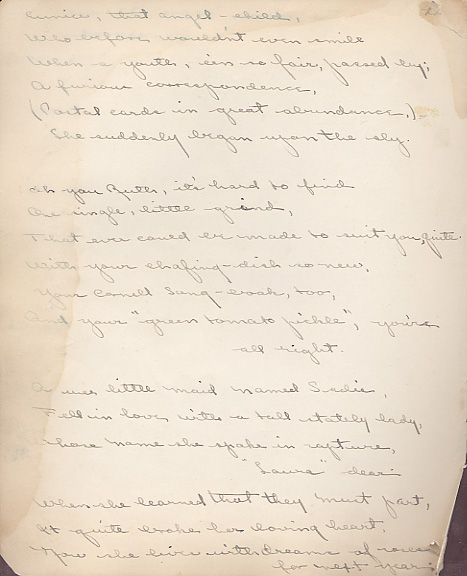 Eunice, that angel-child,
Who before wouldn't even smile
When a youth, e'en so fair, passed by;
A furious correspondence,
(Postal cards in great abundance,)
She suddenly began upon the sly.
Oh you Ruth, it's hard to find
One single, little grind,
That ever could be made to suit you, quite.
With your chafing-dish so new,
Your Cornell Song-book, too,
And your "green tomato pickle", you're
all right.
A wee little maid named Sadie,
Fell in love with a tall stately lady,
Whose name she spake in rapture,
"Laura" dear.
When she learned that they must part,
It quite broke her loving heart.
Now she lives with dreams of
for next year.